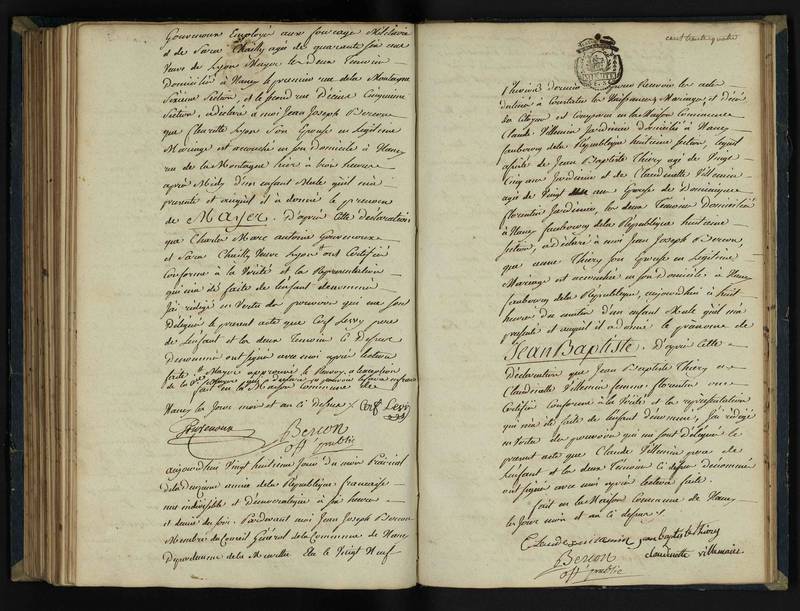 Gouvenoux Employé aux fourage Militaire
et de Sara Chailly agée de quarante six ans
Veuve de Lyon Mayer les deux Temoins
Domiciliés à Nancy le premier rue de la Montagne
Sixieme Section, et le second rue Décius Cinquieme
Section, a déclaré a moi Jean Joseph Bercon
que fleurette Lyon Son Epouse en légitime
Mariage est accouchée en son Domicile à Nancy
rue de la Montagne hier à trois heures
après Midy d'un enfant Male qu'il m'a
presenté et auquel il a donné le prenom
de Mayer. D'après cette déclaration
que Charle Marc antoine Gouvenoux
et Sara Chailly Veuve Lyon ont Certifié
Conforme à la Vérité et la Representation
qui m'a été faite de l'enfant denommé
J'ai rédigé en Vertu des pouvoirs qui me sont
Délégués le present acte que Cerf Levy pere
de l'enfant et les deux Temoins Ci dessus
Denommé ont signé avec moi après lecture
faite
fait en la Maison Commune de
Nancy les Jour mois et an ci dessus Cerf Levi
Bercon
off. public
aujourd'hui Vingt huitieme Jour du mois Prairial
de la Deuxieme année de la République francaise
une indivisible et Democratique à six heures
et demie du soir. Pardevant moi Jean Joseph Bercon
Membre du Conseil Général de la Commune de Nancy
Departement de la Meurthe Elu le Vingt Neuf
cent trente quatre
Thivose dernier pour Recevoir les actes
destinés à Constater les Naissances, Mariages, et décès
des Citoyens est Comparu en la Maison Commune
Claude Villemin Jardinier Domicilié à Nancy
faubourg de la Republique huitieme section, lequel
assisté de Jean Baptiste Thiery agé de Vingt
Cinq ans Jardinier et de Claudinette Villemin
agée de Vingt ans Epouse de Dominique
florentin Jardinier, les deux Temoins Domiciliés
à Nancy faubourg de la Republique huitieme
section, a déclaré à moi Jean Joseph Bercon,
que anne Thiery son Epouse en Légitime
Mariage est accouchée en son Domicile à Nancy
faubourg de la Republique, aujourd'hui à huit
heures du matin d'un enfant Male qu'il m'a
presenté et auquel il a donné le prénome de
Jean Baptiste. D'après cette
Déclaration que Jean Baptiste Thiery et
Claudinette Villemin femme florentin ont
Certifié Conforme à la Vérité et la représentation
qui m'a été faite de l'enfant dénommé, J'ai rédigé
en Vertu des pouvoirs qui me sont délégués le
present acte que Claude Villemin pere de
l'enfant et les deux Temoins Ci dessus dénommé
ont signé avec moi après lecture faite.
fait en la Maison Commune de Nancy
les Jour mois et an Ci dessus
jean baptiste thiery
Bercon claudinette villemain
off. public